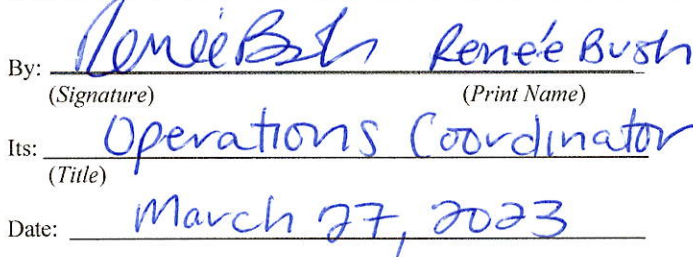 By: Renée Bush Renée Bush
(Signature) (Print Name)
Its: Operations Coordinator
(Title)
Date: March 27, 2023